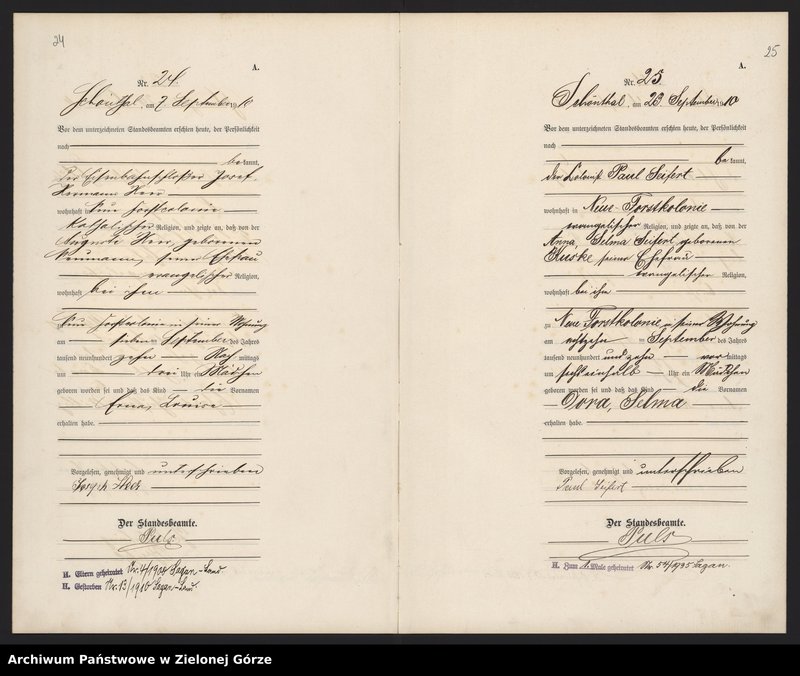 24
A.
Nr. 24.
Schönthal, am 7. September 1910
Vor dem unterzeichneten Standesbeamten erschien heute, der Persönlichkeit
nach
be kannt,
der Eisenbahnschlosser Josef
Hermann
wohnhaft in Neue Forstcolonie
katholischer Religion, und zeigte an, daß von der
Auguste geborenen
Neumann, seiner Ehefrau
evangelischer Religion,
wohnhaft bei ihm
Neue Forstcolonie in seiner Wohnung
am September des Jahres
tausend neunhundert zehn Nach mittags
um drei Uhr ein Mädchen
geboren worden sei und daß das Kind die Vornamen
Erna, Louise
erhalten habe.
Vorgelesen, genehmigt und unterschrieben
Joseph
Der Standesbeamte.
Puls
H. Eltern geheiratet Nr. 4/1908 Sagan-Land
H. Gestorben Nr. 13/1910 Sagan-Land.
25
A.
Nr. 25.
Schönthal, am 23. September 1910
Vor dem unterzeichneten Standesbeamten erschien heute, der Persönlichkeit
nach
be kannt,
der Kolonist Paul Seifert
wohnhaft in Neue Forstkolonie
evangelischer Religion, und zeigte an, daß von der
Anna, Selma Seifert geborenen
Kuske seiner Ehefrau
evangelischer Religion,
wohnhaft bei ihm
zu Neue Forstkolonie in seiner Wohnung
am achtzehn September des Jahres
tausend neunhundert und zehn vor mittags
um sechseinhalb Uhr ein Mädchen
geboren worden sei und daß das Kind die Vornamen
Dora, Selma
erhalten habe.
Vorgelesen, genehmigt und unterschrieben
Paul Seifert
Der Standesbeamte.
Puls
H. Zum 1. Male geheiratet Nr. 54/1935 Sagan.
Archiwum Państwowe w Zielonej Górze